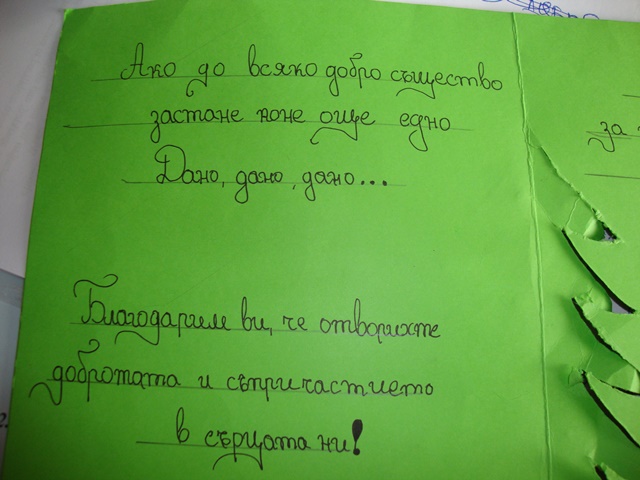 Ако до всяко добро същество
застане поне още едно
Дано, дано, дано...
Благодарим ви, че отворихте
добротата и съпричастието
в сърцата ни!
за